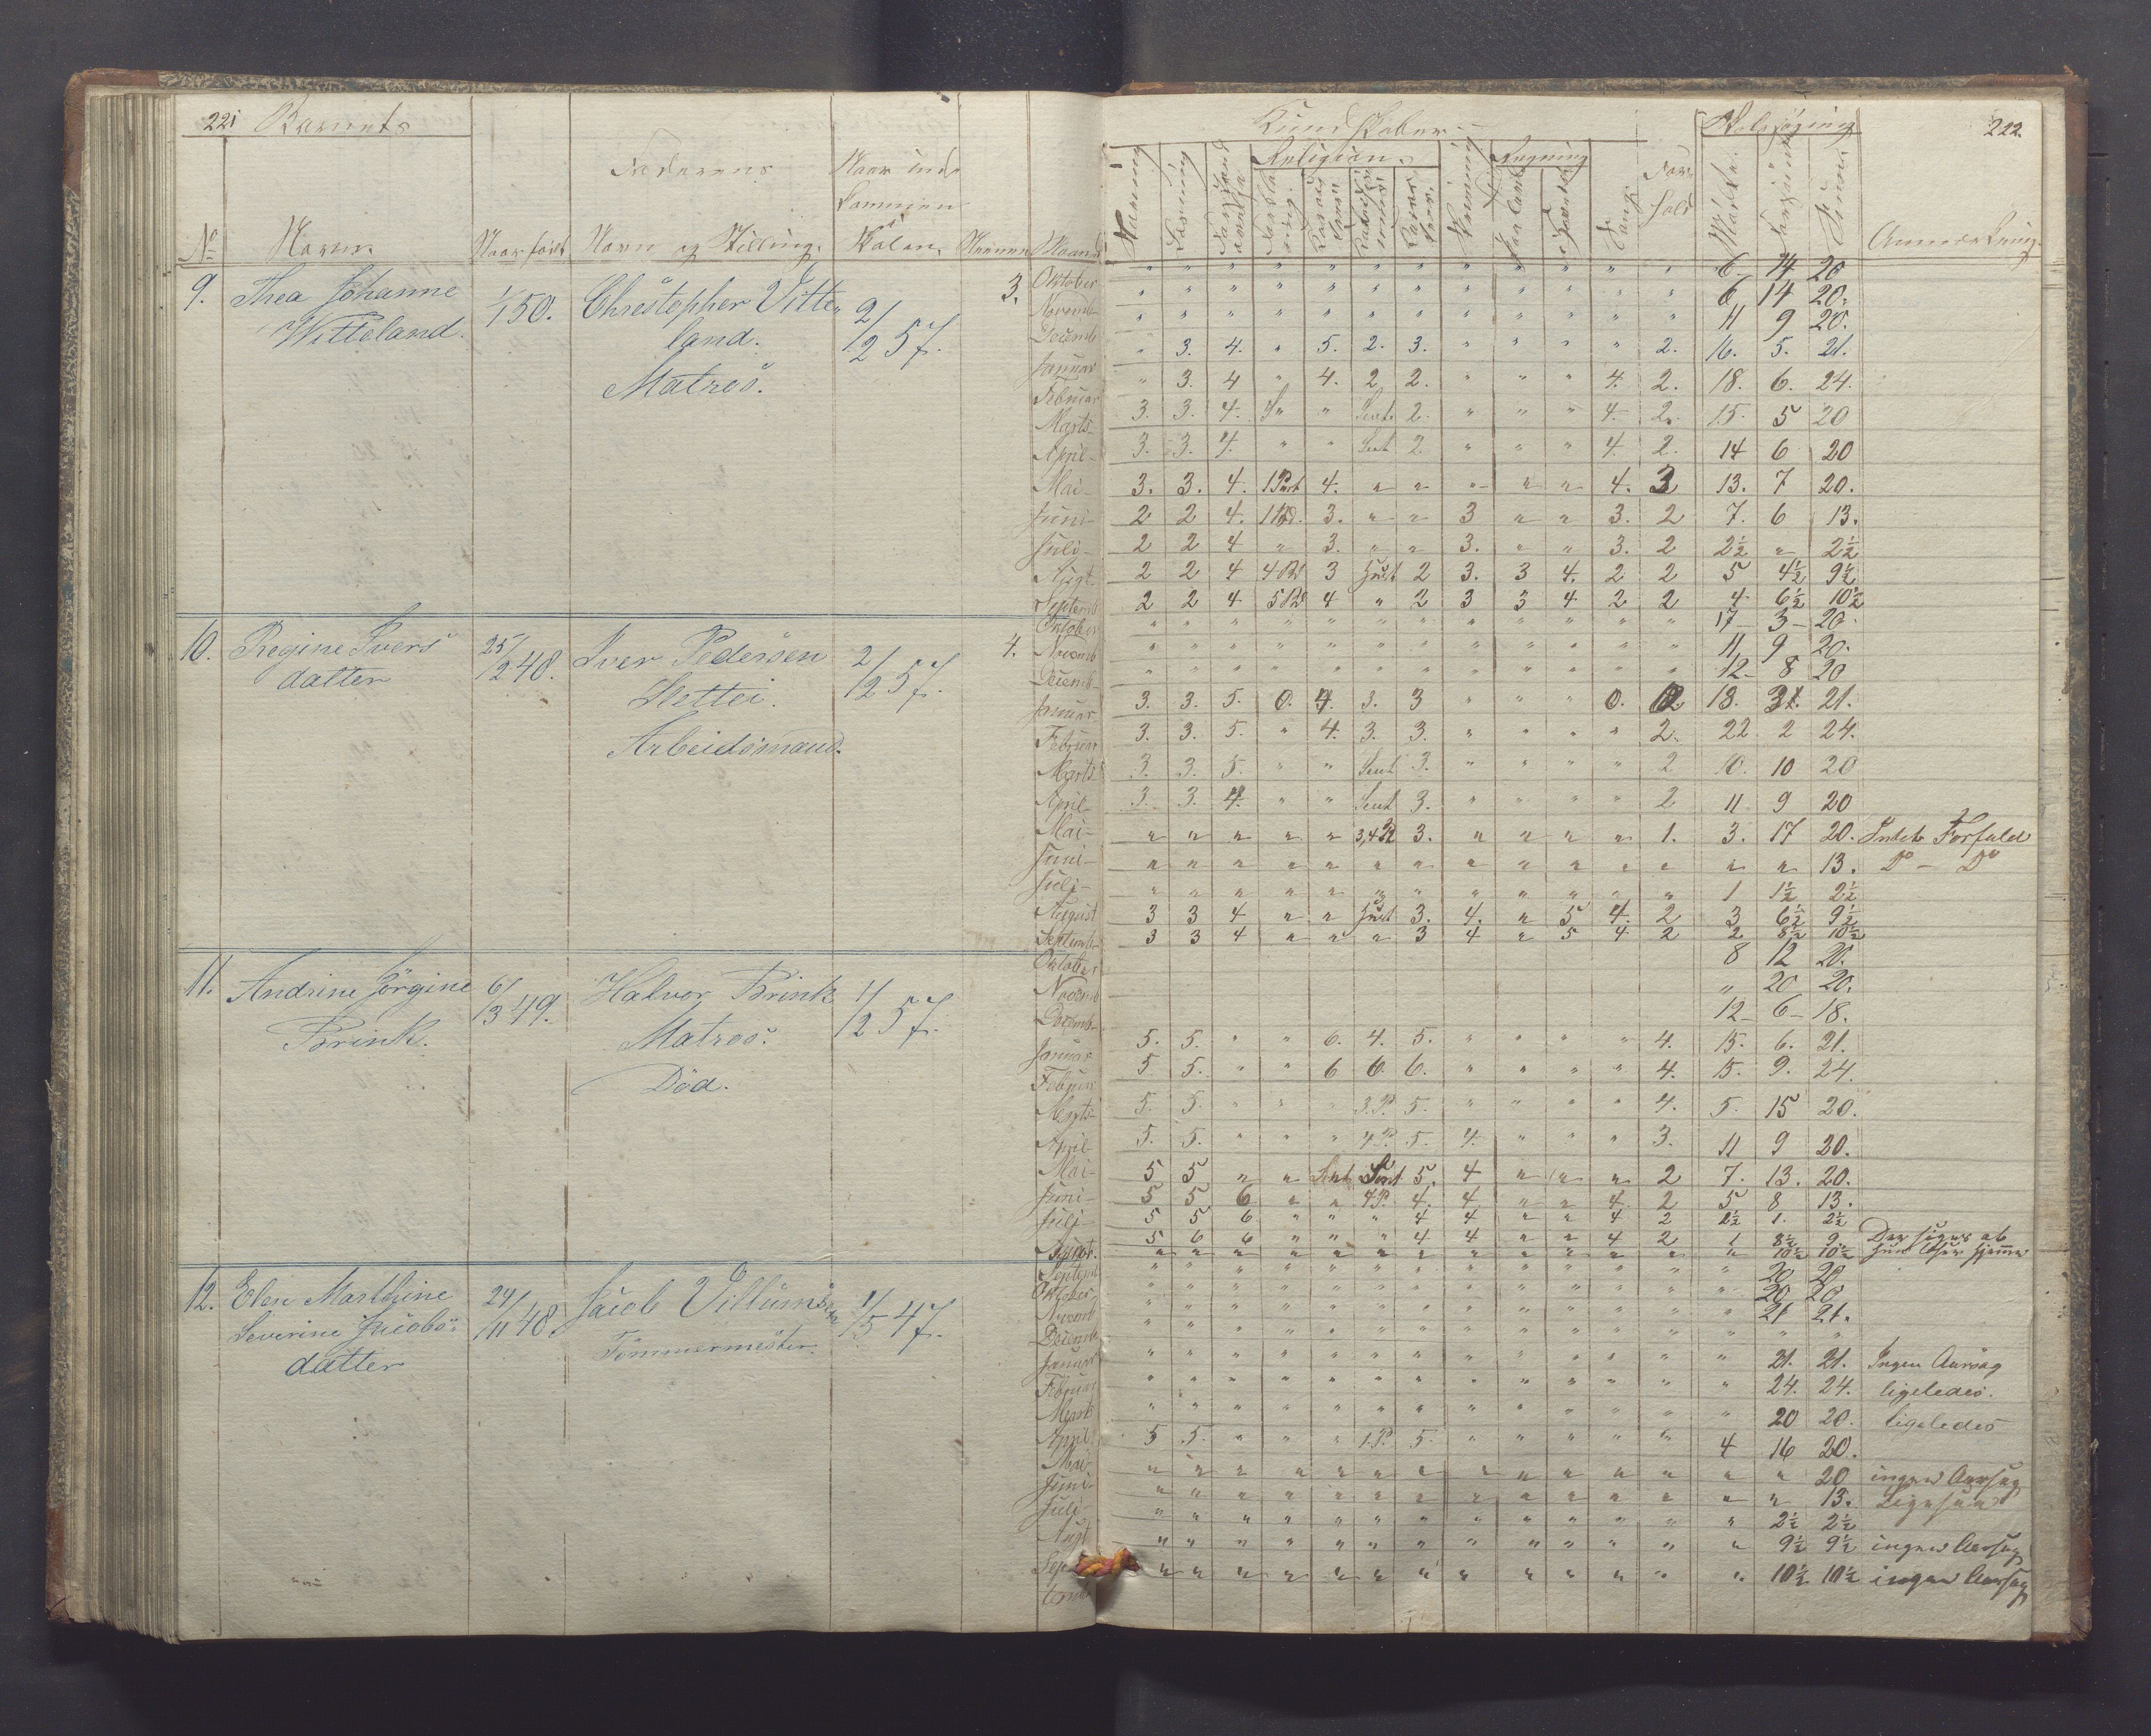 221 Barnets
Faderens
Naar ind-
kommen i
Skolen.
No Navn. Naar født Navn og Stilling. Nummer Maaned
9. Thea Johanne 1/1 50. Christopher Vitte- 2/12 57. 3.
Witteland. land.
Matros.
Oktober
Novemb
Decemb
Januar
Februar
Marts
April
Mai
Juni
Juli
Augt.
Septemb
10. Regine Ivers 25/2 48. Iver Pedersen 2/12 57. 4.
datter
Arbeidsmand.
Oktober
Novemb
Decemb
Januar
Februar
Marts
April
Mai
Juni
Juli
August
Septemb
11. Andrine Jørgine 6/3 49. Halvor Brink 1/12 57.
Brink. Matros.
Død.
Oktober
Novemb
Decemb
Januar
Februar
Marts
April
Mai
Juni
Juli
August
Septemb
12. Elen Marthine 24/11 48. Jacob Villumsen 1/5 47.
Severine Jacobs- Tömmermester.
datter
Oktober
Novemb
Decemb
Januar
Februar
Marts
April
Mai
Juni
Juli
Augt
Sep
temb
Kundskaber Skolesøgning 222.
Religion. Regning
Læsning Skrivning Sang For-
hold
Anmærkning
" " " " " " " " " " " " 6 14 20
" " " " " " " " " " " " 6 14 20.
" " " " " " " " " " " " 11 9 20.
" 3. 4. " 5. 2. 3. " " " " 2. 16. 5. 21.
" 3. 4 " 4. 2 2. " " " 4. 2. 18. 6. 24.
3. 3. 4. " 2. " " " 4. 2. 15. 5 20
3. 3. 4. " " 2. " " " 4. 2. 14 6 20
3. 3. 4. 1 Part 4. " " " " " 4. 3 13. 7 20.
2 2 4. 3. " " 3 " " 3. 2 7. 6 13.
2 2 4 " 3. " " 3. " " 3. 2 2½ " 2½
2 2 4 3 2 3. 3 4. 2 2 5 4½ 9½
2 2 4 4 " 2 3 3 4 2 2 4 6½ 10½
" " " " " " " " " " " " 17 3 20.
" " " " " " " " " " " " 11 9 20.
" " " " " " " " " " " " 12 8 20
3. 3. 5. 0. 4. 3. 3 " " " 0. 2 18. 3. 21.
3. 3. 5. " 4. 3. 3. " " " " 2. 22 2 24.
3. 3. 5. " " 3. " " " " 2 10. 10 20
3. 3. 4. " " 3. " " " " 2 11 9 20
" " " " " 3. " " " " 1. 3. 17 20. Intet Forfald
" " " " " " " " " " " " " " 13. Do - Do
" " " " " " " " " " " " 1 1½ 2½
3 3 4 " " 3. 4. " 5 4. 2 3 6½ 9½
3 3 4 " " " 3 4 " 5 4 2 2 8½ 10½
8 12 20.
" 20 20.
12 6 18.
5. 5. " " 6. 4. 5. " " " " 4. 15. 6. 21.
5 5. " " 6 6. 6. " " " " 4. 15. 9. 24.
5. 5. " " " 3.P. 5. " " " " 4. 5. 15 20.
5. 5. " " " 4P. 5. 4. " " " 3. 11 9 20.
5 5 " " 5. 4 " " " 2 7. 13. 20.
5 5 6 " " 4P. 4. 4 " " 4. 2 5 8 13.
5 5 6 " " " 4 4 " " 4 2 1½ 1. 2½
5 6 6 " " " 4 4 " " 4 2 1 8½ 9 Der siges at
" " " " " " " " " " " " " 10½ 10½ hun læser hjemme
" " " " " " " " " " " " " 20 20
" " " " " " " " " " " " " 20 20
" " " " " " " " " " " " " 21 21.
" " " " " " " " " " " " " 21. 21. Ingen Aarsag
" " " " " " " " " " " " " 24. 24. ligeledes.
" " " " " " " " " " " " " 20 20. ligeledes
5 5. " " " 1.P. 5. " " " " " 4 16 20.
" " " " " " " " " " " " " " 20 ingen Aarsag
" " " " " " " " " " " " " " 13. Ligesaa
" " " " " " " " " " " " " 2½ 2½
" " " " " " " " " " " " " 9½ 9½ ingen Aarsag
" " " " " " " " " " " " " 10½ 10½ ingen Aarsag